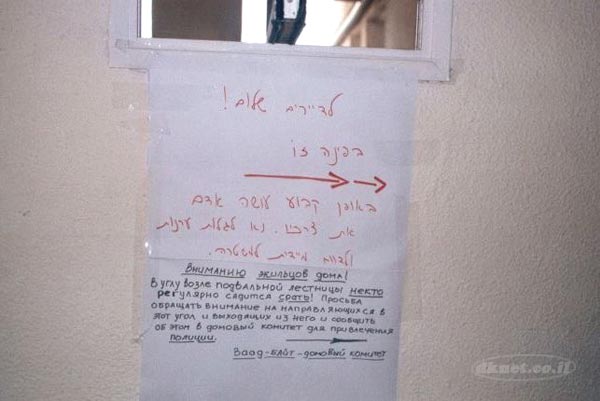 לדיירים שלום!
בפינה זו
באופן קבוע עושה אדם
את צרכיו. נא לגלות ערנות
ולדווח מידית למשטרה.
Вниманию жильцов дома!
В углу возле подвальной лестницы некто
регулярно садится срать! Просьба
обращать внимание на направляющихся в
этот угол и выходящих из него и сообщить
об этом в домовый комитет для привлечения
полиции.
Ваад-байт-домовый комитет
dknet.co.il